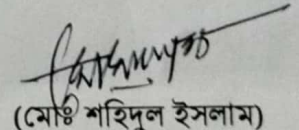 (মোঃ শহিদুল ইসলাম)